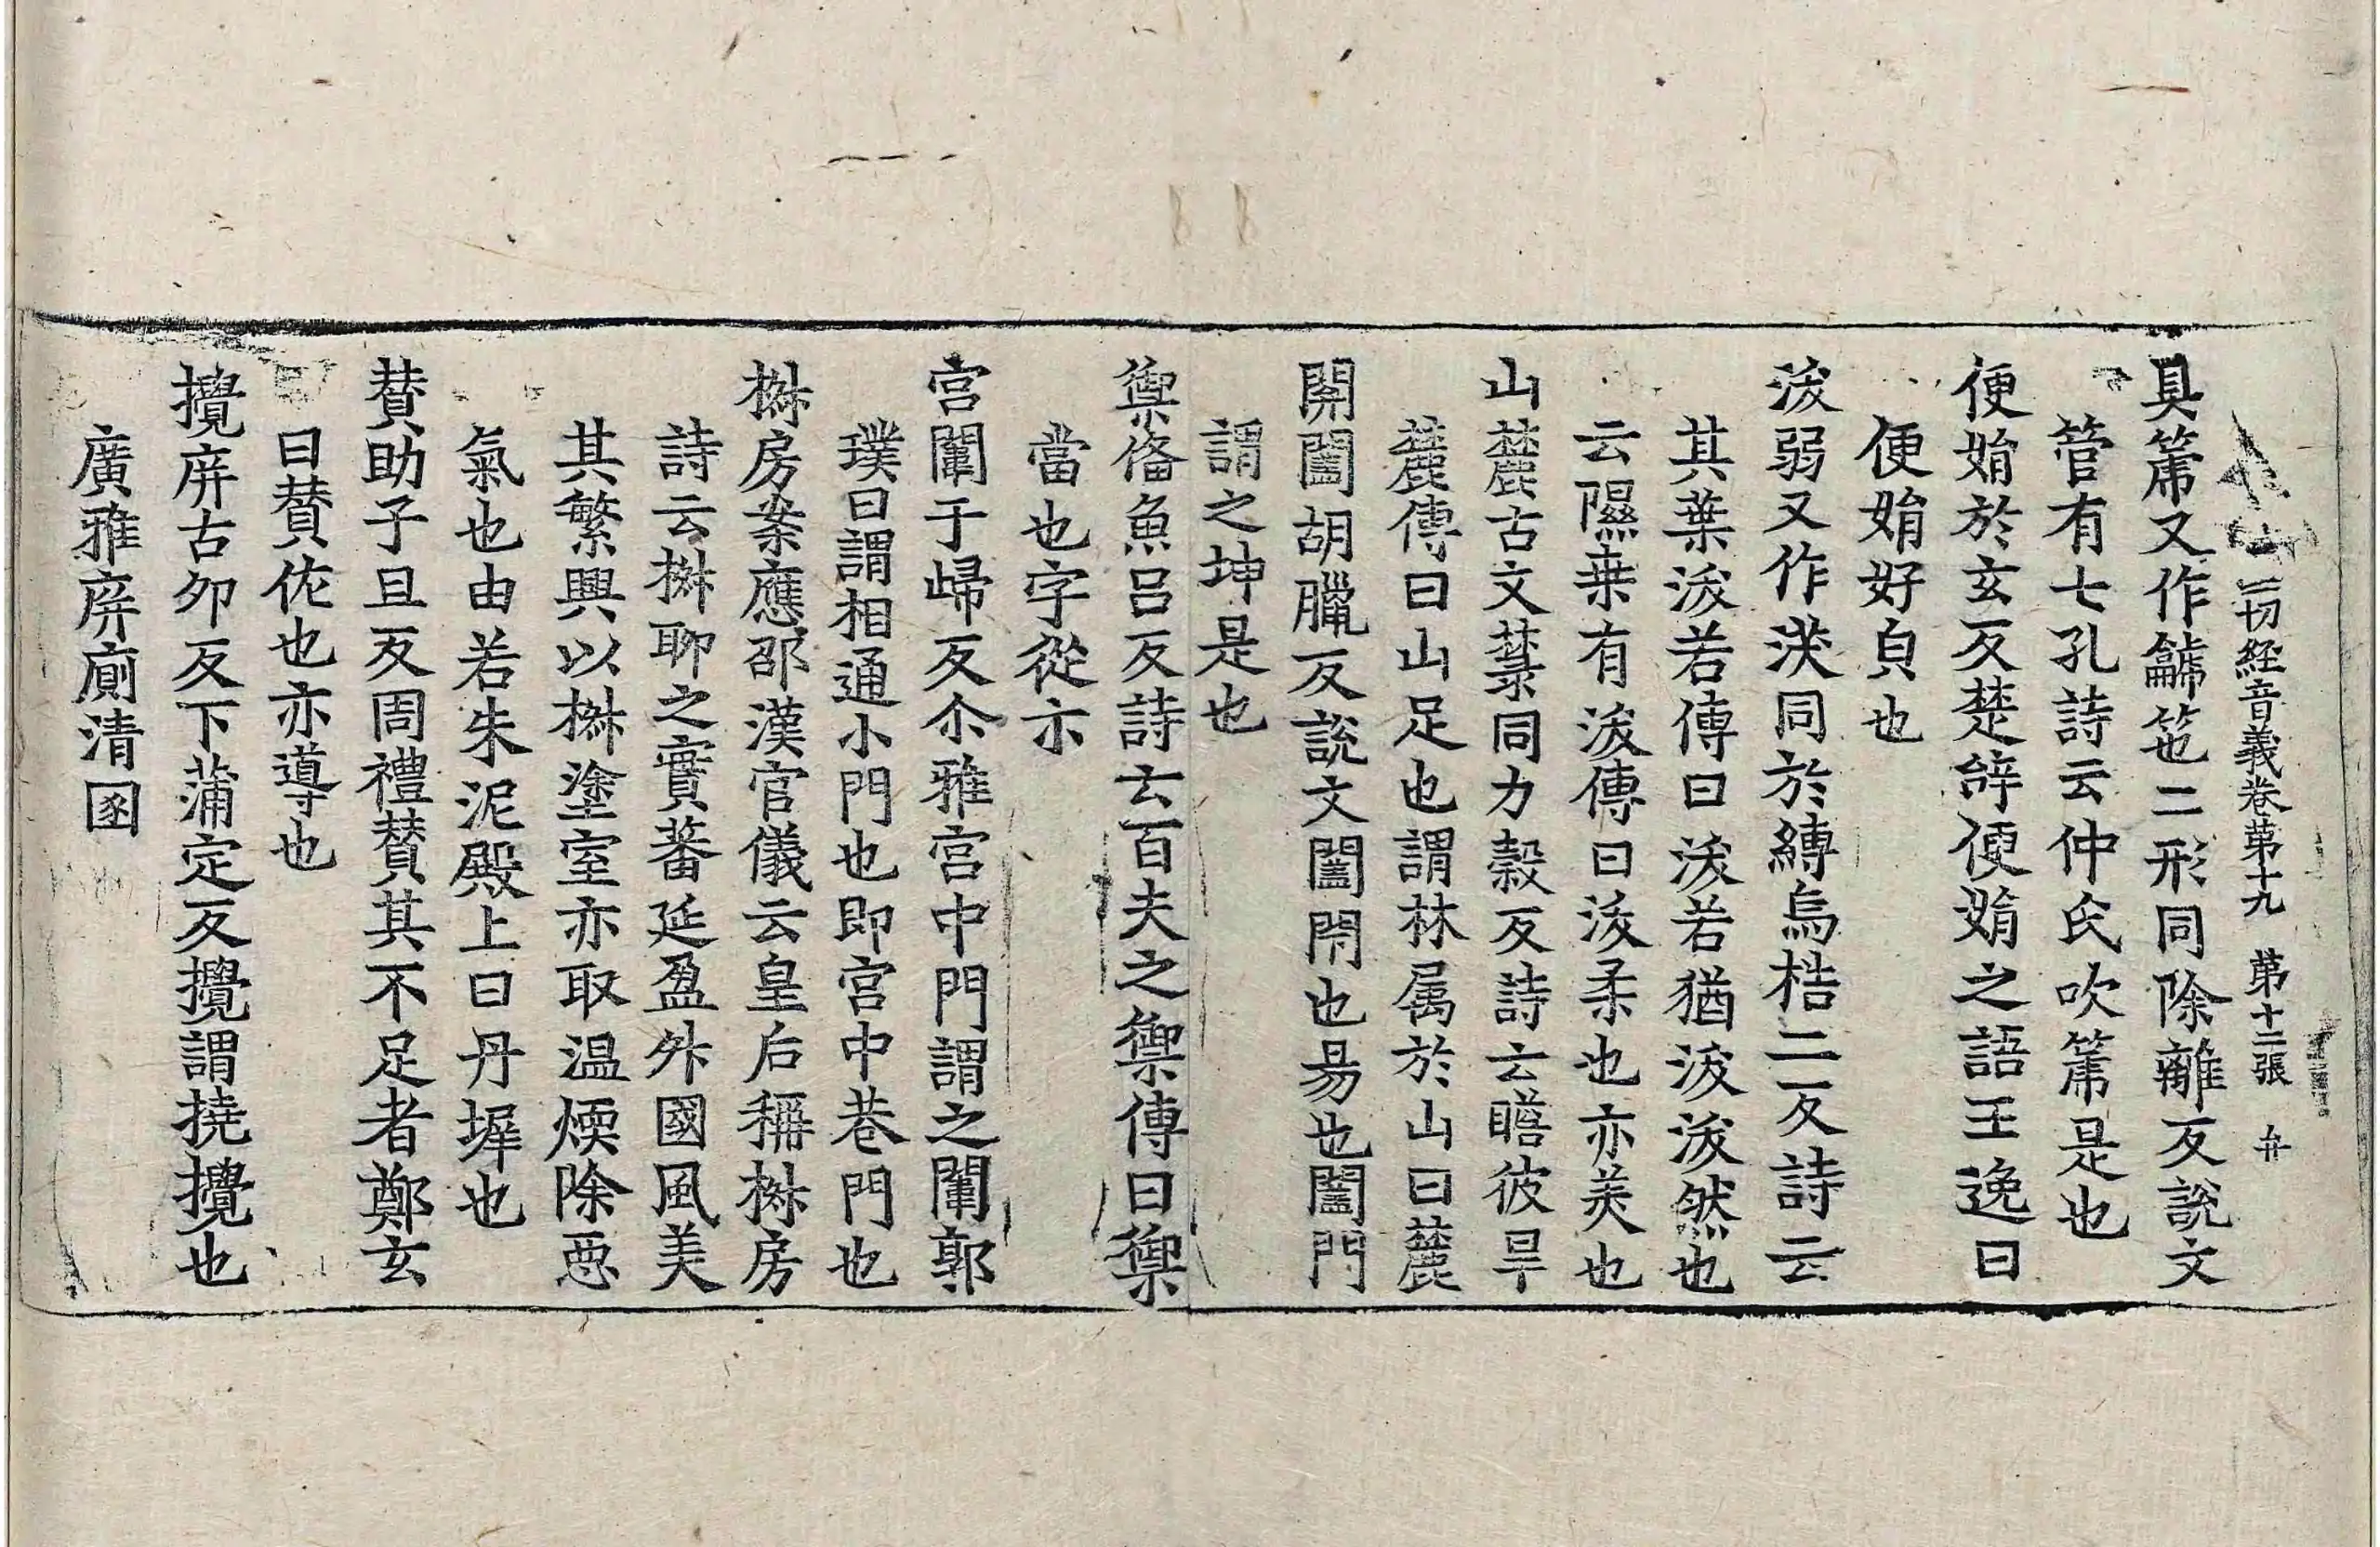 一切経音義卷第十九 第十二張 弁
具篪又作龥笹二形同除離反說文
管有七孔詩云仲氏吹篪是也
便娟於玄反楚辝便娟之語王逸曰
便娟好皃也
沃弱又作渶同於縳烏梏二反詩云
其葉沃若傳曰沃若猶沃沃然也
云隰桒有沃傳曰沃柔也亦美也
山麓古文䔼同力榖反詩云瞻彼旱
麓傳曰山足也謂林属於山曰麓
開闔胡臘反說文闔閇也昜也闔門
謂之坤是也
禦俻魚呂反詩云百夫之禦傳曰禦
當也字從示
宮闈于歸反尒雅宮中門謂之闈郭
璞曰謂相通小門也即宮中巷門也
椒房案應邵漢官儀云皇后稱椒房
詩云椒聊之實蕃延盈外國風美
其繁興以椒塗室亦取温煗除惡
氣也由若朱泥殿上曰丹墀也
賛助子且反周禮賛其不足者鄭玄
曰賛佐也亦導也
攪屏古夘反下蒲定反攪謂撓攪也
廣雅屏廁清圂